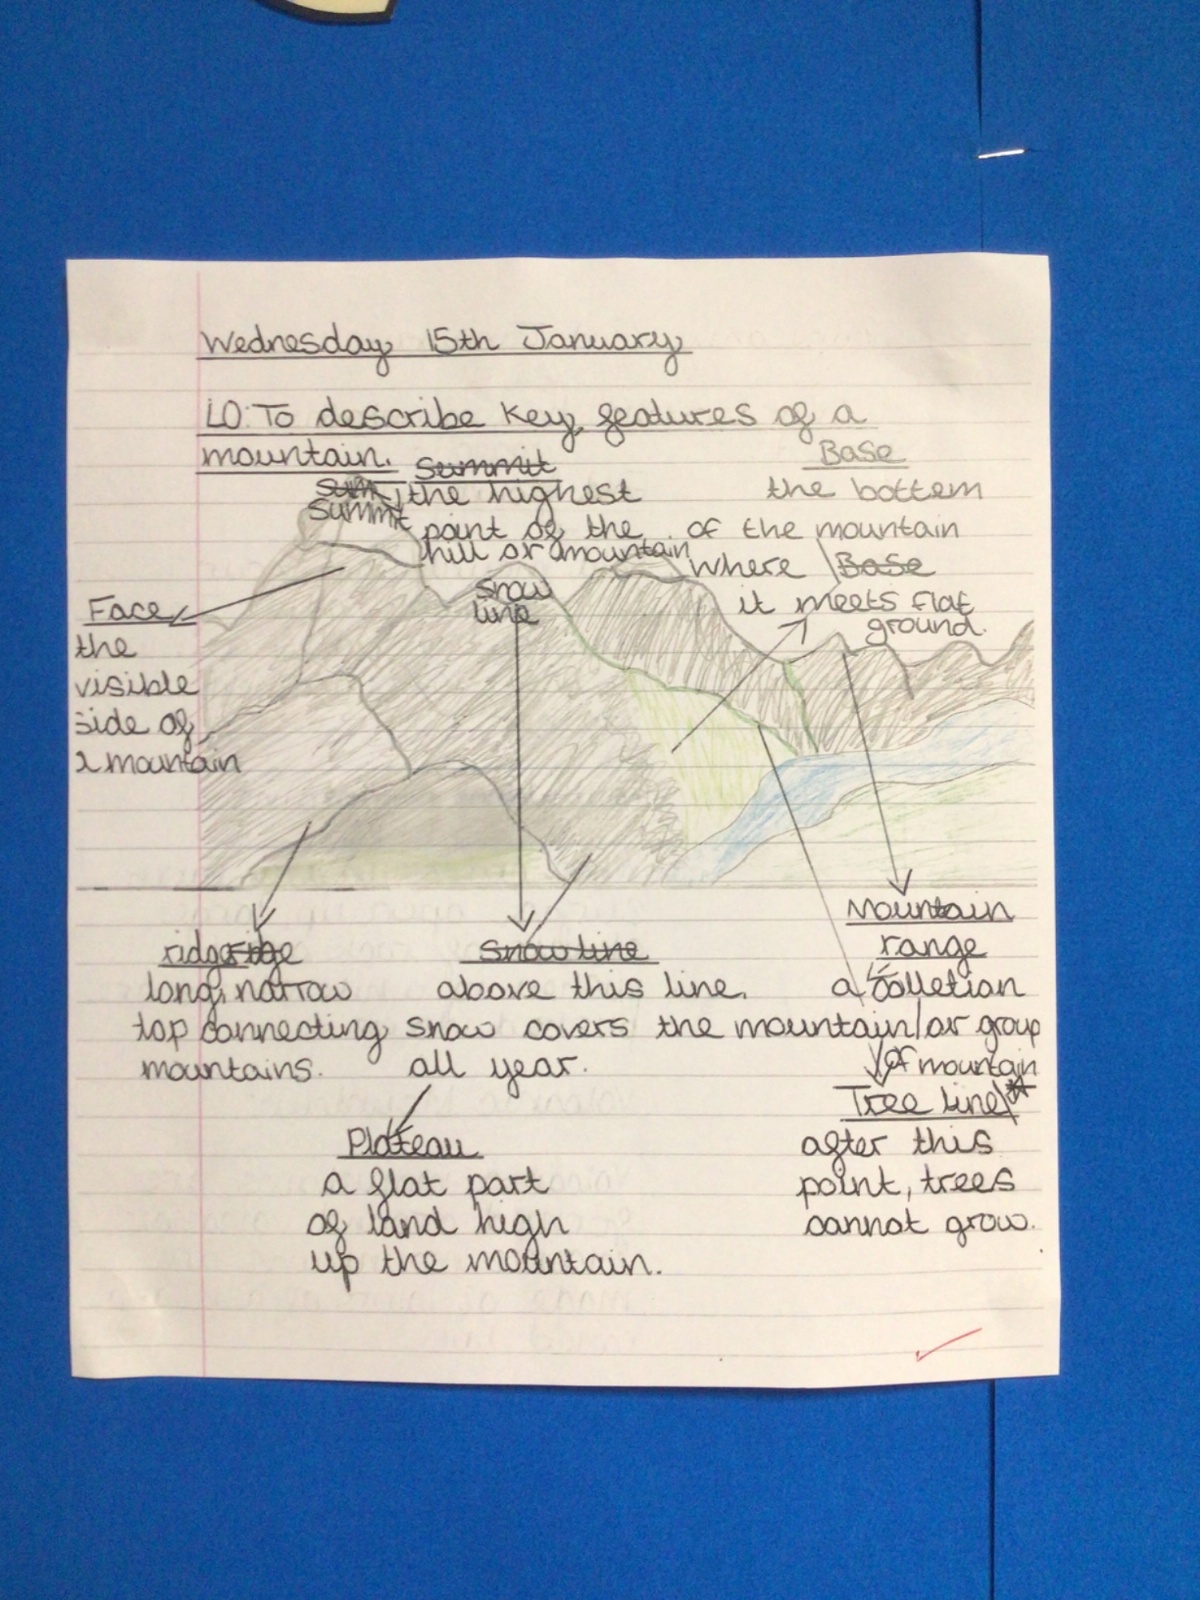 Wednesday 15th January
LO: To describe key features of a
mountain.
Summit
Sum
Summit
the highest
point of the
hill or mountain
Base
the bottem
of the mountain
where Base
it meets flat
ground.
Snow
line
Face
the
visible
side of
a mountain
ridge
long, narrow
top connecting
mountains.
Snow line
above this line,
snow covers the mountain
all year.
Mountain
range
a colletian
/or group
of mountain
Tree line *
after this
point, trees
cannot grow.
Plateau
a flat part
of land high
up the mountain.